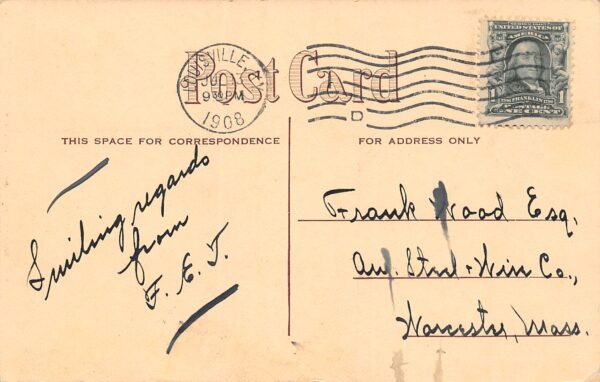 Post Card
LOUISVILLE, K
JU
930PM
1908
D
UNITED STATES OF
AMERICA
FRANKLIN
1 1
POSTAGE
ONE CENT
THIS SPACE FOR CORRESPONDENCE
FOR ADDRESS ONLY
Smiling regards
from
F. E. T.
Frank Wood Esq.
Am. Steel & Wire Co.,
Worcester, Mass.